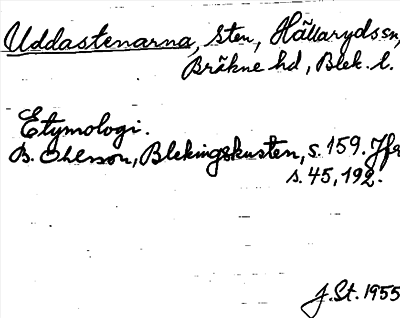 Uddastenarna, sten, Hällarydssn,
Bräkne hd, Blek. l.
Etymologi.
B. Ohlsson, Blekingskusten, s. 159. Jfr
s. 45, 192.
J. St. 1955